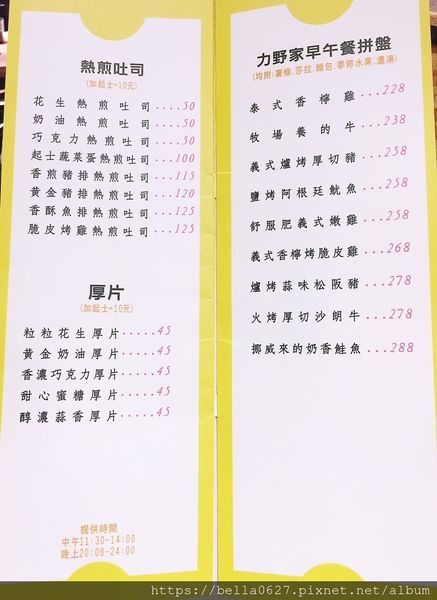 熱煎吐司
(加起士+10元)
花生熱煎吐司....50
奶油熱煎吐司....50
巧克力熱煎吐司....50
起士蔬菜蛋熱煎吐司...100
香煎豬排熱煎吐司...115
黃金豬排熱煎吐司...120
香酥魚排熱煎吐司...125
脆皮烤雞熱煎吐司...125
厚片
(加起士+10元)
粒粒花生厚片.....45
黃金奶油厚片.....45
香濃巧克力厚片.....45
甜心蜜糖厚片.....45
醇濃蒜香厚片.....45
提供時間
中午11:30-14:00
晚上20:00-24:00
力野家早午餐拼盤
(均附:薯條.莎拉.麵包.季節水果.濃湯)
泰式香檸雞...228
牧場養的牛...238
義式爐烤厚切豬...258
鹽烤阿根廷魷魚...258
舒服肥義式嫩雞...258
義式香檸烤脆皮雞...268
爐烤蒜味松阪豬...278
火烤厚切沙朗牛...278
挪威來的奶香鮭魚...288
https://bella0627.pixnet.net/album